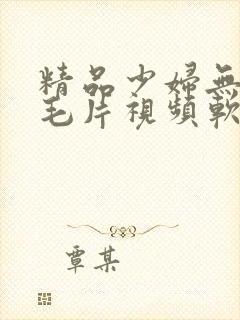 精品少婦無
毛片視頻軟
覃某